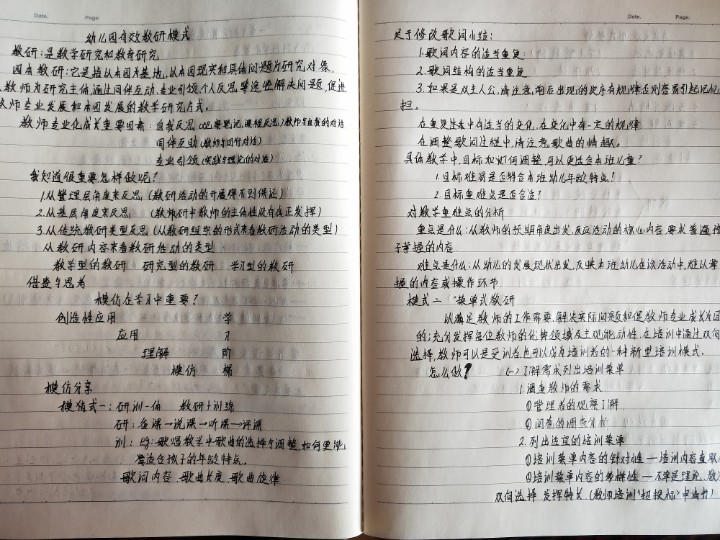 Date. Page.
幼儿园有效教研模式
教研:是教学研究和教育研究
园本教研:它是指以本园为基地,以本园现实和具体问题为研究对象,
教师为研究主体,通过同伴互动、专业引领、个人反思等途径解决问题,促进
教师专业发展和本园发展的教学研究方式。
教师专业化成长重要因素:自我反思(
同伴互助(教师与同行对话)
专业引领(实践与理论的对话)
我知道很重要怎样做呢?
1.从管理层角度来反思(教研活动的开展得不到保证)
2.从基层角度来反思(教师研中教师的主体性没有真正发挥)
3.从传统教研类型反思(从教研组学的形式来看教研活动的类型)
从教研内容来看教研活动的类型
教学型的教研 研究型的教研 学习型的教研
借鉴与思考
模仿在学习中重要?
创造性应用 学
应用 习
理解 阶
模仿 梯
模仿分享
模式一:研训一体 教研+训练
研:备课→说课→听课→评课
训:给:歌唱教学中歌曲的选择与调整,如何更换,
适应孩子的年龄特点。
歌词内容、歌曲长度、歌曲旋律
Date. Page.
关于修改歌词小结:
1.歌词内容的适当重复
2.歌词结构的适当重复
3.如果是双主人公,请注意,前后出现的次序有规律在则答案引起记忆
担。
在重复性中有适当的变化,在变化中有一定的规律
在调整歌词过程中,请注意歌曲的情趣。
具体教学中,目标如何调整可以更适合本班儿童?
1.目标难易是否符合本班幼儿年龄特点!
2.目标重难点是否合适!
对教学重难点的分析
重点是什么:从教师的长期角度出发,反应活动的核心内容,要求普遍
掌握的内容
难点是什么:从幼儿的发展现状出发,反映本班幼儿在该活动中,难以掌
握的内容或操作环节
模式二:菜单式教研
以满足教师的工作需要,解决实际问题和促教师专业成长为目
的;充分发挥每位教师的优势领域及主观能动性,在培训中通过双向
选择,教师可以是受训者也可以成为培训者的一种新型培训模式。
怎么做? (一)了解需求列出培训菜单
1.调查教师的需求
①管理者的观察了解
②问卷的调查分析
2.列出适宜的培训菜单
①培训菜单内容的针对性——培训内容
②培训菜单内容的多样性——不单是理论,
双向选择 发挥特长(教师培训"超投标"中